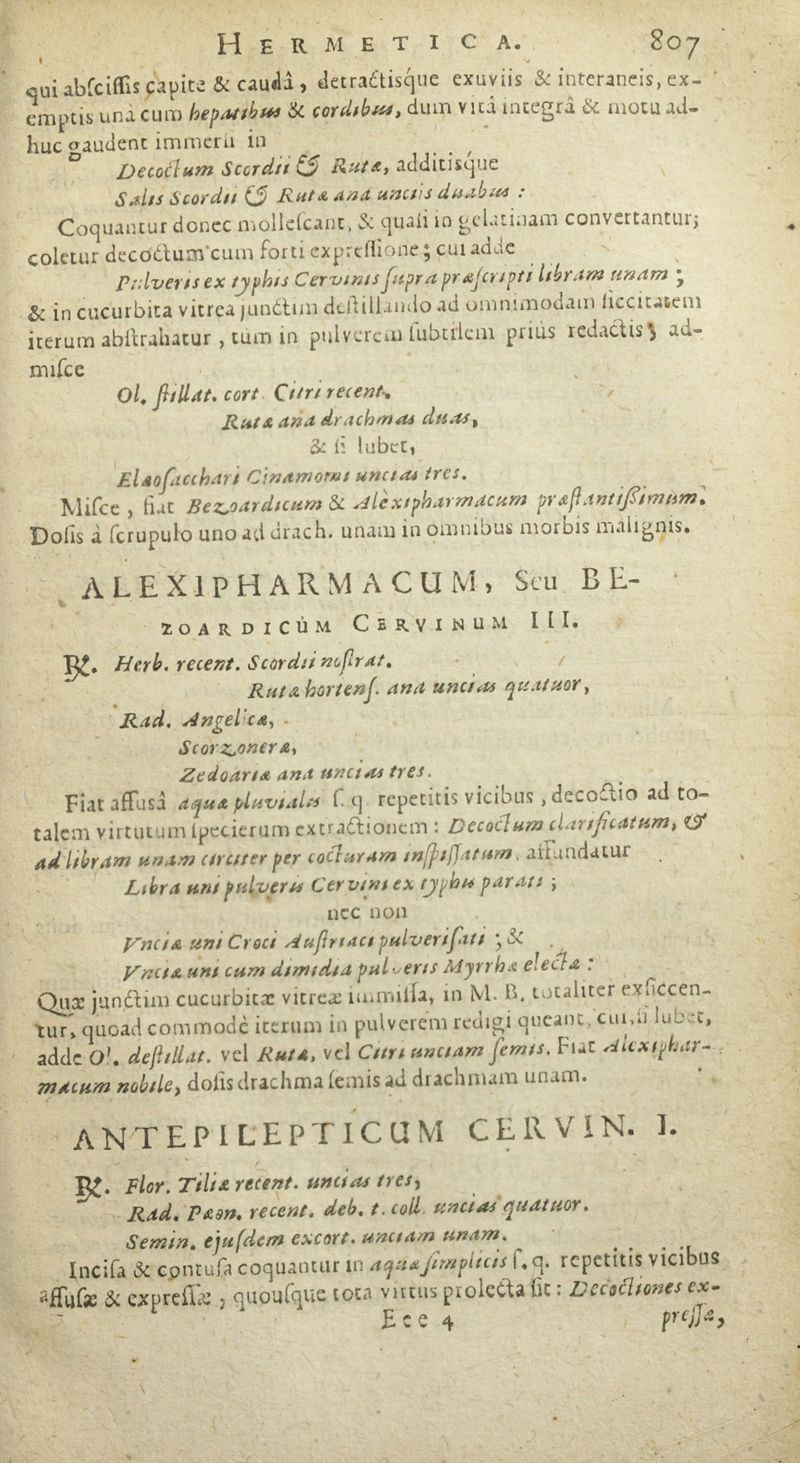 HERMETICA. 807
qui abſciſſis capite & caudâ, detractisque exuviis & interaneis, ex-
emptis unà cum hepatibus & cordibus, dum vitâ integrâ & motu ad-
huc gaudent immerſi in
Decoctum Scordii & Rutæ, additisque
Salis Scordii & Rutæ ana unciis duabus :
Coquantur donec molleſcant, & quaſi in gelatinam convertantur;
coletur decoctum cum forti expreſſione; cui adde
Pulveris ex typhis Cervinis ſupra præſcripti libram unam ;
& in cucurbita vitrea junctim deſtillando ad omnimodam ſiccitatem
iterum abſtrahatur, tum in pulverem ſubtilem priùs redactis; ad-
miſce
Ol. ſtillat. cort. Citri recent.
Rutæ ana drachmas duas,
& ſi lubet,
Elæoſacchari Cinamomi uncias tres.
Miſce, fiat Bezoardicum & Alexipharmacum præſtantiſſimum.
Doſis à ſcrupulo uno ad drach. unam in omnibus morbis malignis.
ALEXIPHARMACUM, Seu BE-
ZOARDICUM CERVINUM III.
℞. Herb. recent. Scordii noſtrat.
Rutæ hortenſ. ana uncias quatuor,
Rad. Angelicæ,
Scorzoneræ,
Zedoariæ ana uncias tres.
Fiat affusâ aquæ pluvialis ſ. q. repetitis vicibus, decoctio ad to-
talem virtutum ſpecierum extractionem : Decoctum clarificatum, &
ad libram unam circiter per cocturam inſpiſſatum, affundatur
Libra uni pulveris Cervini ex typhis parati ;
nec non
Vnciæ uni Croci Auſtriaci pulveriſati ; &
Vnciæ uni cum dimidia pulveris Myrrhæ electæ :
Quæ junctim cucurbitæ vitreæ immiſſa, in M. B. totaliter exſiccen-
tur, quoad commodè iterum in pulverem redigi queant, cui, ſi lubet,
adde Ol. deſtillat. vel Rutæ, vel Citri unciam ſemis. Fiat Alexiphar-
macum nobile, doſis drachma ſemis ad drachmam unam.
ANTEPILEPTICUM CERVIN. I.
℞. Flor. Tiliæ recent. uncias tres,
Rad. Pæon. recent. deb. t. coll. uncias quatuor.
Semin. ejuſdem excort. unciam unam.
Inciſa & contuſa coquantur in aquæ ſimplicis ſ. q. repetitis vicibus
affuſæ & expreſſæ, quouſque tota virtus prolecta ſit : Decoctiones ex-
Eee 4 preſſæ,